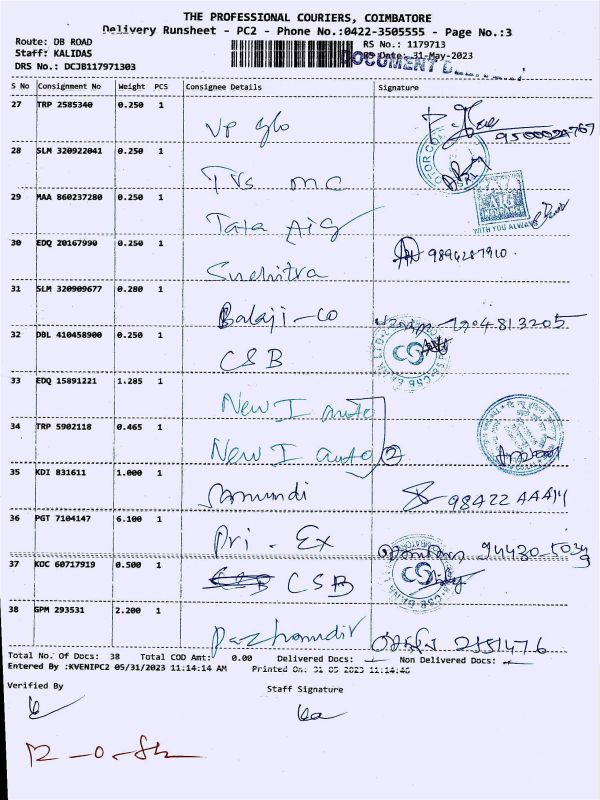 THE PROFESSIONAL COURIERS, COIMBATORE
Delivery Runsheet - PC2 - Phone No.:0422-3505555 - Page No.:3
Route: DB ROAD
Staff: KALIDAS
DRS No.: DCJB117971303
RS No.: 1179713
RS Date: 31-May-2023
DOCUMENT
S No Consignment No Weight PCS Consignee Details Signature
27 TRP 2585340 0.250 1
VP glo
28 SLM 320922041 0.250 1
TVS MC
29 MAA 860237280 0.250 1
Tata AIG
WITH YOU ALWAYS
30 EDQ 20167990 0.250 1
Suchitra 9894287910
31 SLM 320909677 0.280 1
Balaji-co
32 DBL 410458900 0.250 1
CSB
33 EDQ 15891221 1.285 1
New I auto
34 TRP 5902118 0.465 1
New I auto 2
35 KDI 831611 1.000 1
36 PGT 7104147 6.100 1
Pri. Ex
37 KOC 60717919 0.500 1
CSB
38 GPM 293531 2.200 1
Pazhamudir 2551476
Total No. Of Docs: 38 Total COD Amt: 0.00 Delivered Docs: Non Delivered Docs:
Entered By :KVENIPC2 05/31/2023 11:14:14 AM Printed On: 31-05-2023 11:14:46
Verified By
Staff Signature